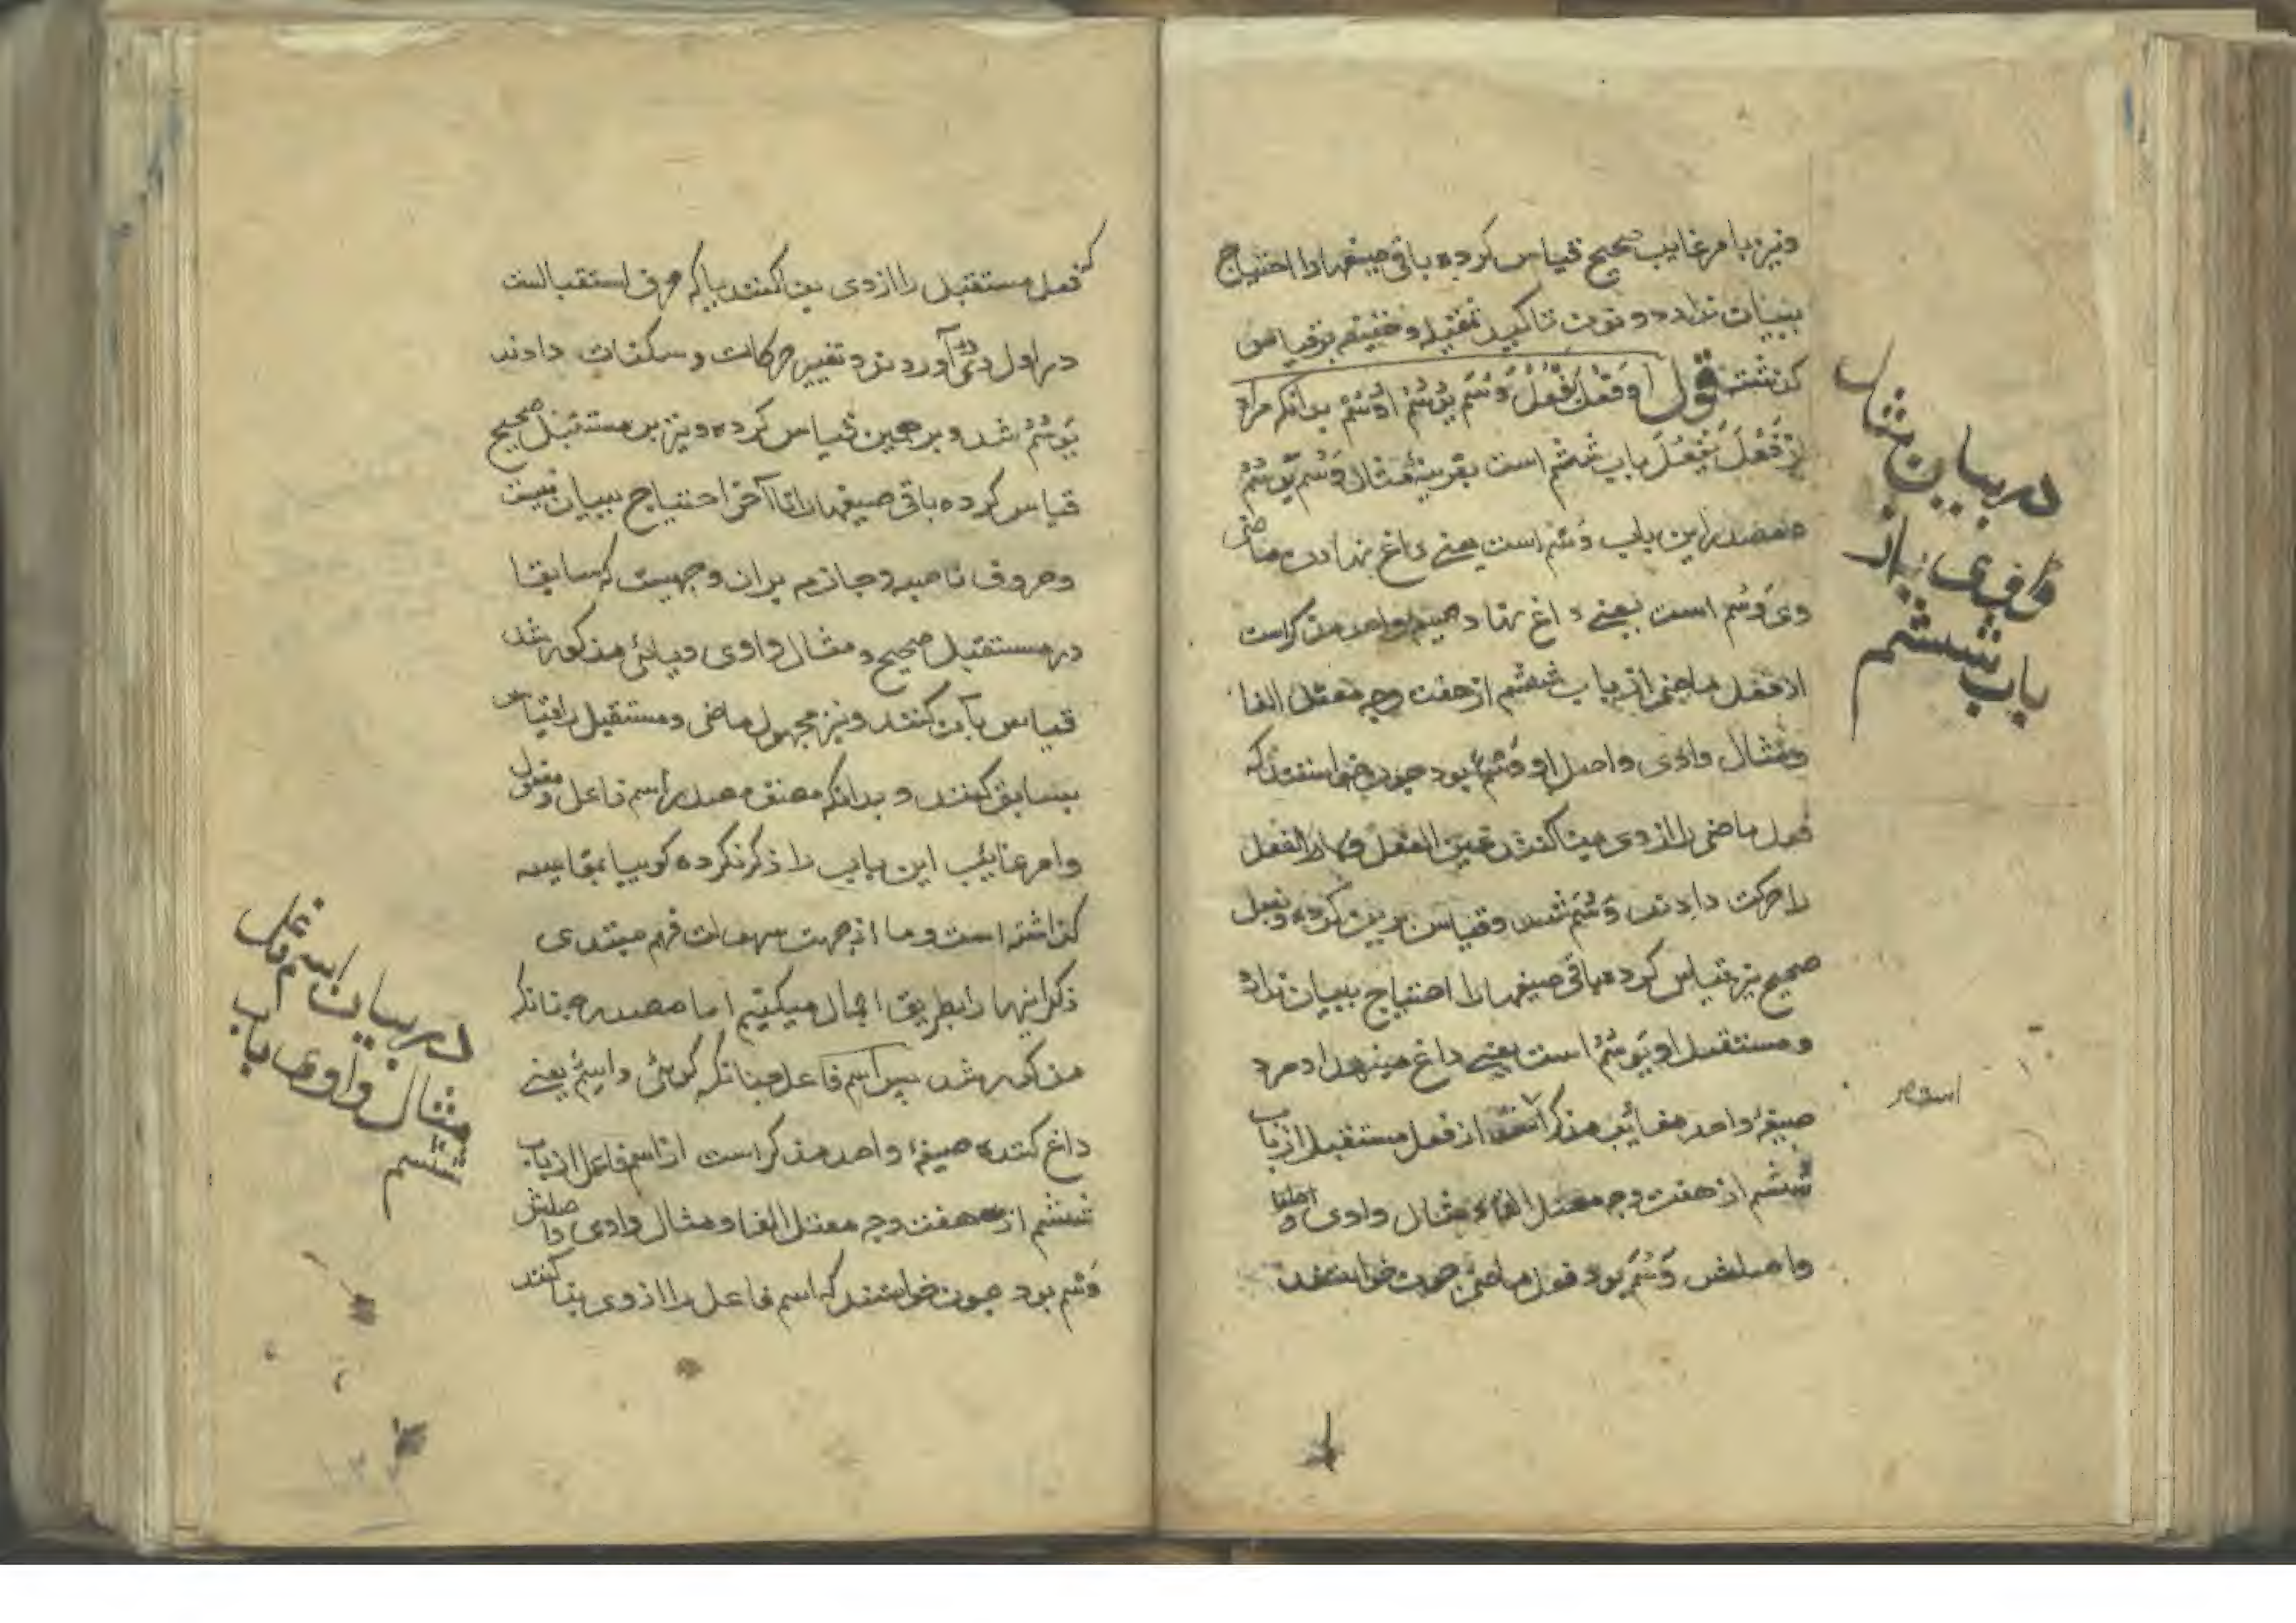 ونیز با مر غایب صحیح قیاس کرده باقی صیغهارا احتیاج
ببیان ندارد و نون تاکید ثقیله و خفیفه بر قیاس
کذشت قول او فَعُلَ یَفْعُلُ وَسُمَ یَوْسُمُ اُوْسُمْ بدانکه مراد
از فَعُلَ یَفْعُلُ باب ششم است بقرینهٔ مثال وَسُمَ یَوْسُمُ
مصدر این باب وَسْم است یعنی داغ نهادن ماضی
وی وَسُمَ است یعنی داغ نهاد صیغه واحد مذکر است
از فعل ماضی از باب ششم از هفت وجه معتل الفا
ومثال واوی واصل او وَسْم بود چون خواستند که
فعل ماضی را از وی بنا کنند عین الفعل ولام الفعل
را حرکت دادند وَسُمَ شد وقیاس برین کرده وبفعل
صحیح نیز قیاس کرده باقی صیغهارا احتیاج ببیان ندارد
ومستقبل او یَوْسُمُ است یعنی داغ مینهد او مرد
صیغهٔ واحد مغایب مذکر است از فعل مستقبل از باب
ششم از هفت وجه معتل الفاء مثال واوی
واصلش وَسُمَ بود فعل ماضی چون خواستند
در بیان مثال
واوی از
باب ششم
که فعل مستقبل را از وی بنا کنند یا که حرف استقبالست
در اول وی آوردند و تغییر حرکات و سکنات دادند
یَوْسُمُ شد و بر همین قیاس کرده و نیز بر مستقبل صحیح
قیاس کرده باقی صیغهارا تا آخر احتیاج ببیان نیست
وحروف ناصبه و جازمه بران وجهیست که سابقا
در مستقبل صحیح و مثال واوی ویائی مذکور شد
قیاس بآن کنند ونیز مجهول ماضی ومستقبل را قیاس
بسابق کنند و بدانکه مصنف مصدر و اسم فاعل و مفعول
وامر غایب این باب را ذکر نکرده کوییا بمقایسه
کذاشته است وما از جهت سهولت فهم مبتدی
ذکر اینها را بطریق اجمال میکنیم اما مصدر چنانکه
مذکور شد پس اسم فاعل چنانکه کوئی واسِمٌ یعنی
داغ کننده صیغهٔ واحد مذکر است از اسم فاعل از باب
ششم از هفت وجه معتل الفا ومثال واوی واصلش
وَسْم بود چون خواستند که اسم فاعل را از وی بنا کنند
در بیان اسم فاعل
مثال واوی باب
ششم